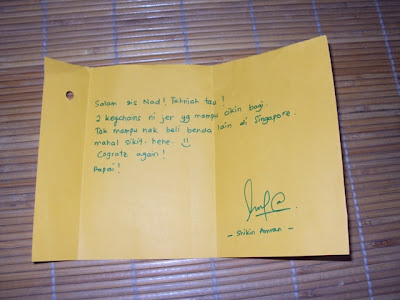 Salam sis Nad! Tahniah tau!
2 keychains ni jer yg mampu cikin bagi.
Tak mampu nak beli benda lain di Singapore.
mahal sikit. hehe.
Cogratz again!
Papai!
- Shikin Amran -